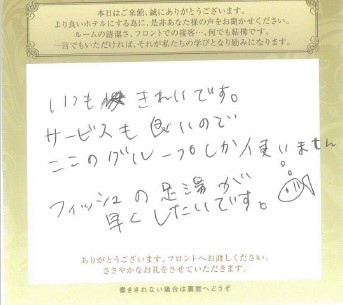 本日はご来館、誠にありがとうございます。
より良いホテルにする為に、是非あなた様の声をお聞かせください。
ルームの清潔さ、フロントでの接客…、何でも結構です。
一言でもいただければ、それが私たちの学びとなり励みになります。
いつもきれいです。
サービスも良いので
ここのグループしか使いません
フィッシュの足湯が
早くしたいです。
ありがとうございます。フロントへお渡しください。
ささやかなお礼をさせていただきます。
書ききれない場合は裏面へどうぞ